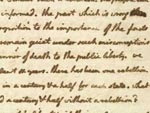 informed. the part which is wrong
proportion to the importance of the facts
remain quiet under such misconceptions
runner of death to the public liberty. we
11. years. there has been one rebellion
in a century & a half for each state. what
a century & half without a rebellion?